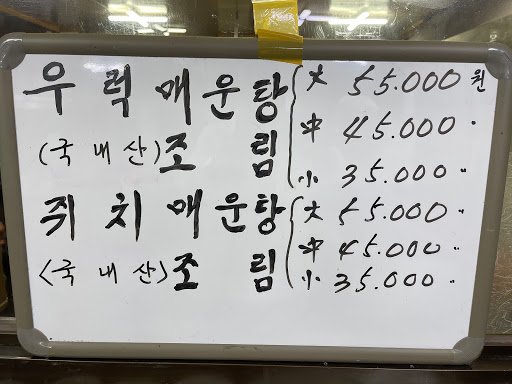 우럭매운탕 大 55.000원
中 45.000 〃
(국내산)조림 小 35.000 〃
쥐치매운탕 大 55.000 〃
中 45.000 〃
<국내산>조림 小 35.000 〃